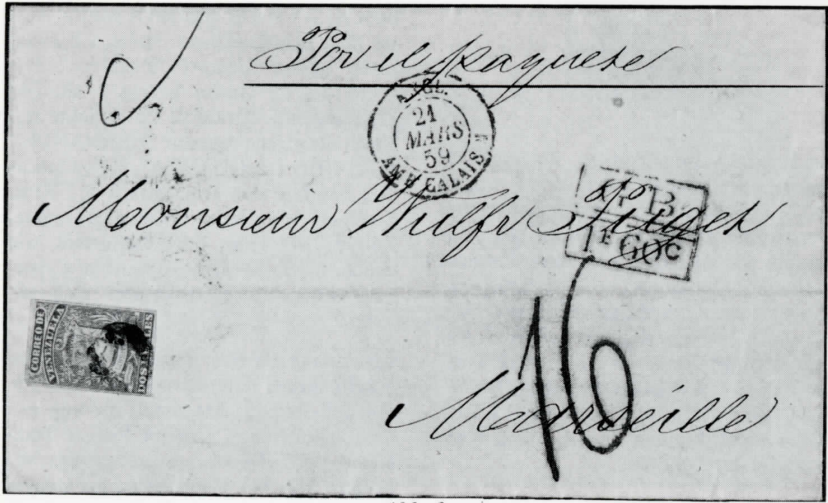 Por el paquete
ANGL.
21
MARS
59
AMB. CALAIS
Monsieur Wulfr Puget
1F 60C
16
CORREO DE
VENEZUELA
DOS REALES
Marseille